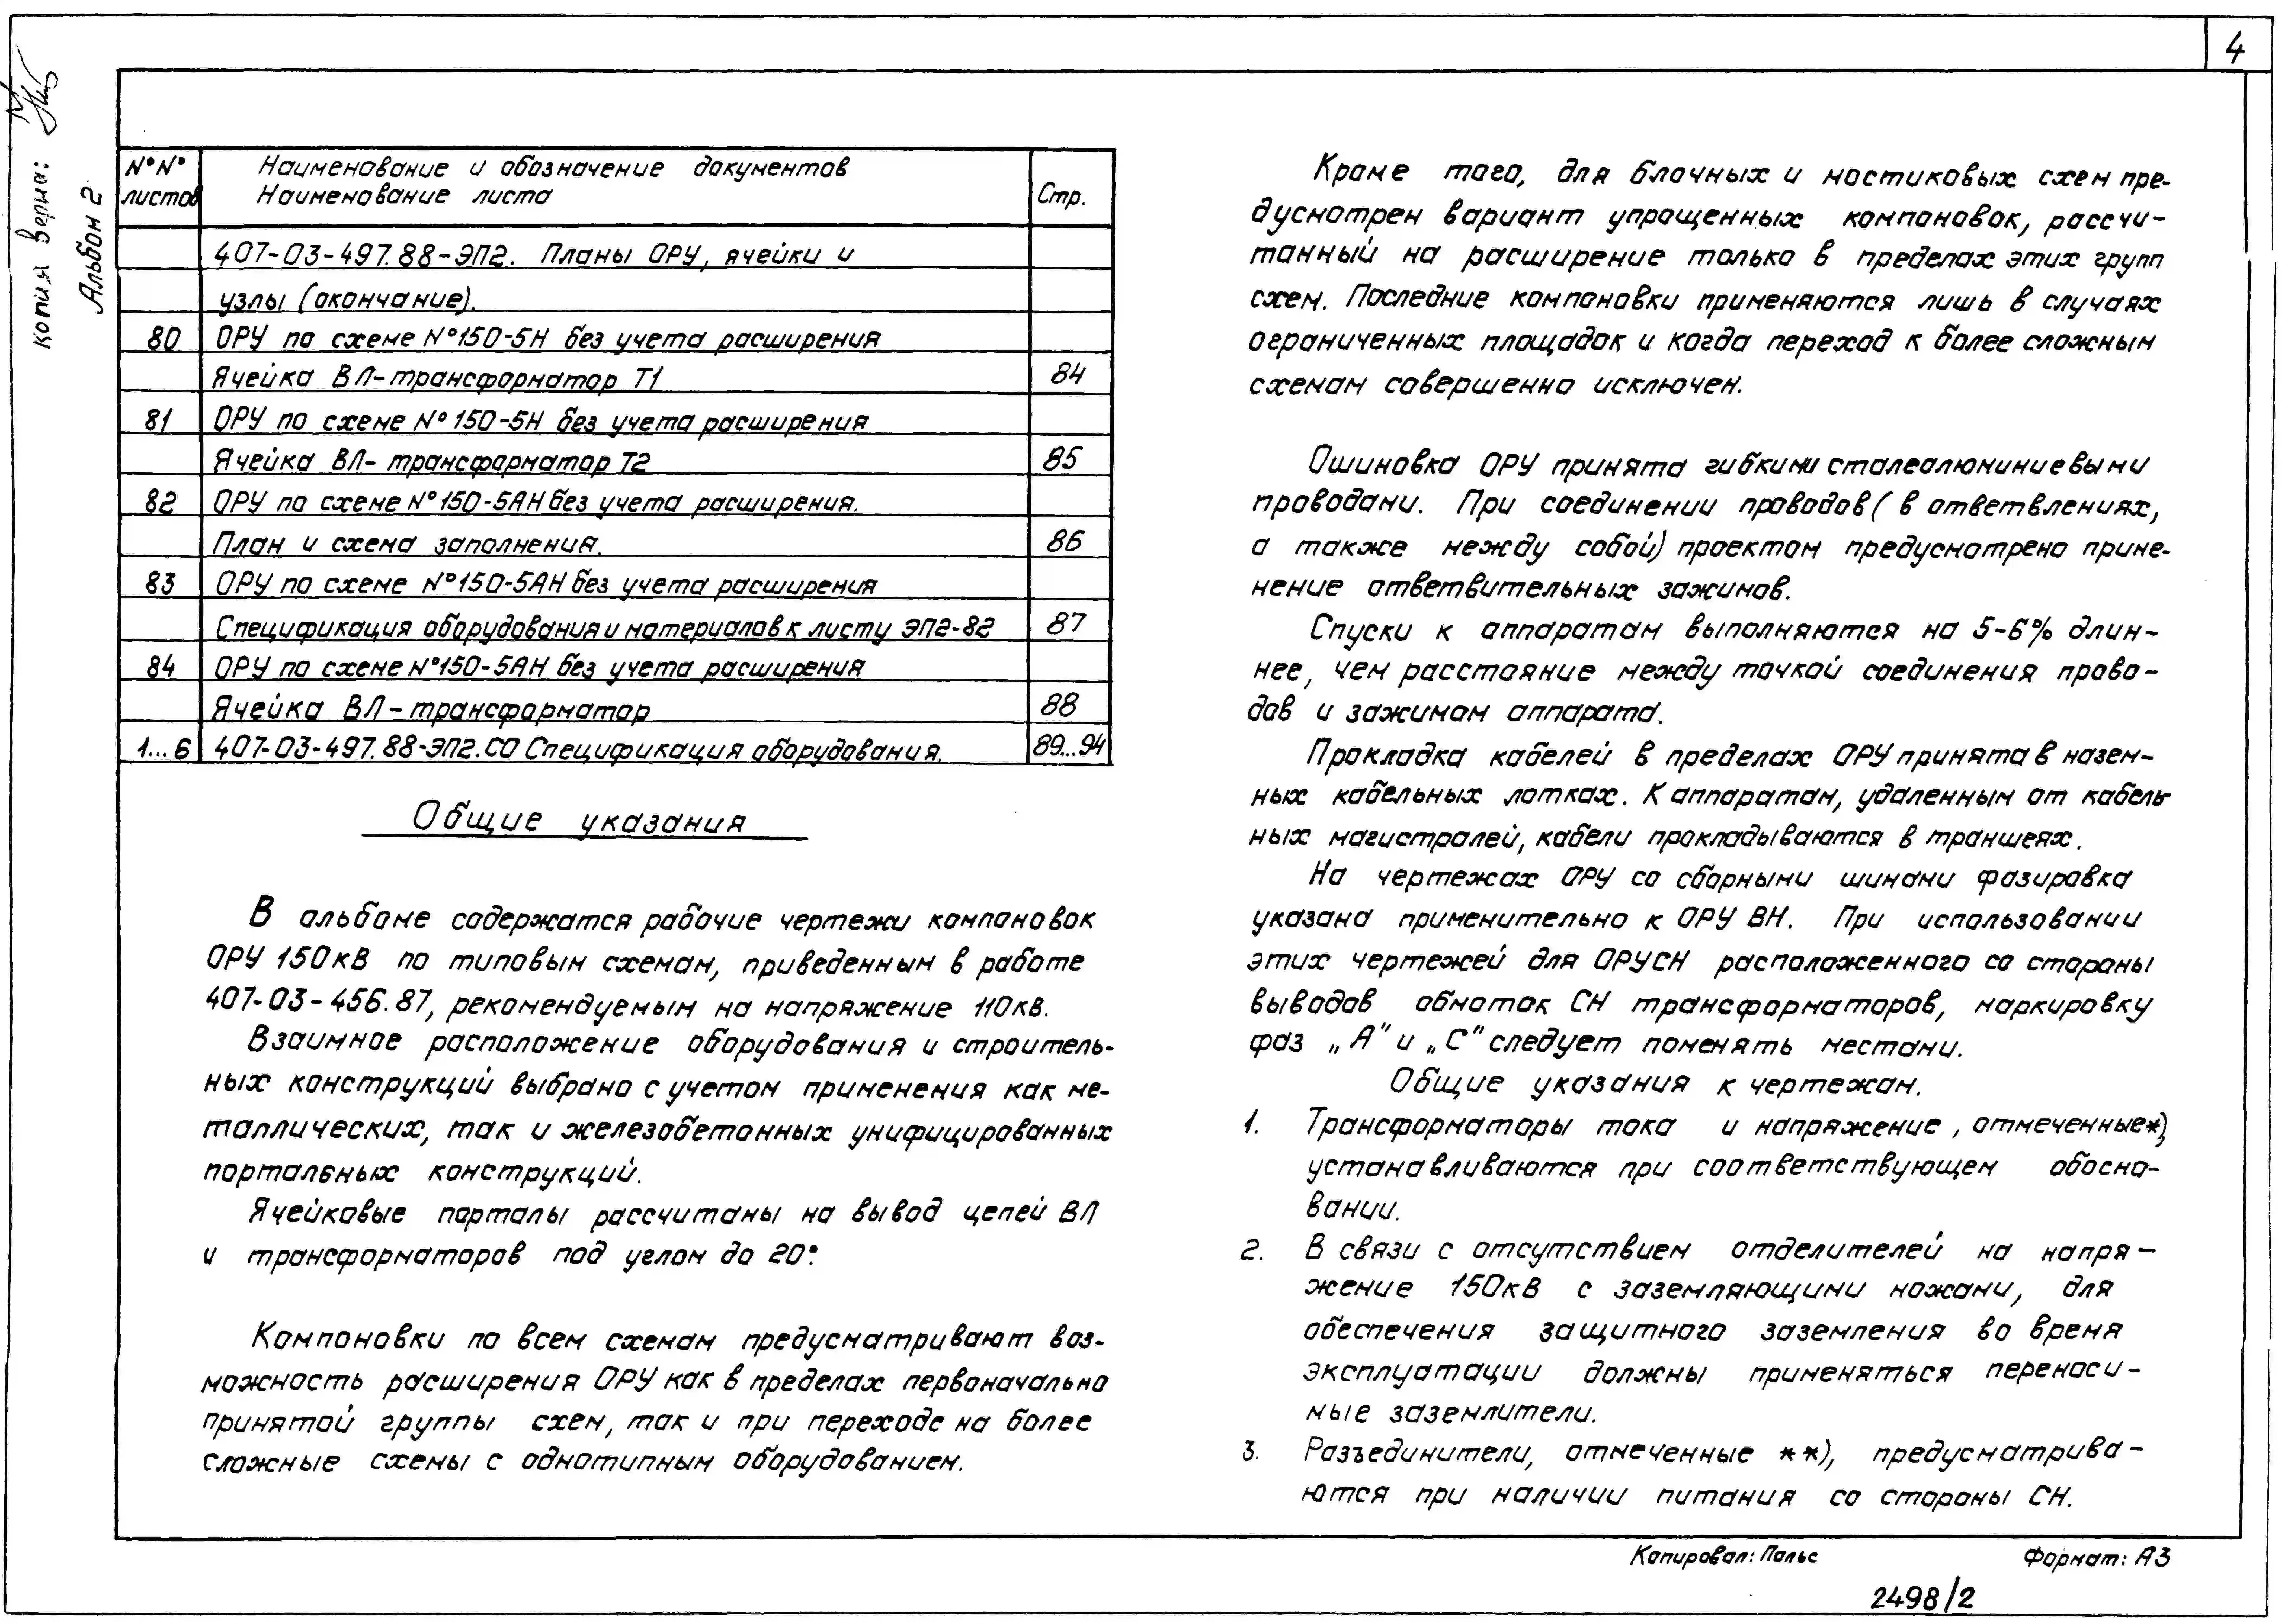 4
копия верна:
Альбом 2
N°N° листов
Наименование и обозначение документов
Наименование листа
Стр.
407-03-497.88-ЭП2. Планы ОРУ, ячейки и
узлы (окончание).
80 ОРУ по схеме N°150-5Н без учета расширения
Ячейка ВЛ-трансформатор Т1 84
81 ОРУ по схеме N°150-5Н без учета расширения
Ячейка ВЛ-трансформатор Т2 85
82 ОРУ по схеме N°150-5АН без учета расширения.
План и схема заполнения. 86
83 ОРУ по схеме N°150-5АН без учета расширения
Спецификация оборудования и материалов к листу ЭП2-82 87
84 ОРУ по схеме N°150-5АН без учета расширения
Ячейка ВЛ-трансформатор 88
1...6 407-03-497.88-ЭП2.СО Спецификация оборудования. 89...94
Общие указания
В альбоме содержатся рабочие чертежи компоновок
ОРУ 150кВ по типовым схемам, приведенным в работе
407-03-456.87, рекомендуемым на напряжение 110кВ.
Взаимное расположение оборудования и строитель-
ных конструкций выбрано с учетом применения как ме-
таллических, так и железобетонных унифицированных
портальных конструкций.
Ячейковые порталы рассчитаны на вывод цепей ВЛ
и трансформаторов под углом до 20°.
Компоновки по всем схемам предусматривают воз-
можность расширения ОРУ как в пределах первоначально
принятой группы схем, так и при переходе на более
сложные схемы с однотипным оборудованием.
Кроме того, для блочных и мостиковых схем пре-
дусмотрен вариант упрощенных компоновок, рассчи-
танный на расширение только в пределах этих групп
схем. Последние компоновки применяются лишь в случаях
ограниченных площадок и когда переход к более сложным
схемам совершенно исключен.
Ошиновка ОРУ принята гибкими сталеалюминиевыми
проводами. При соединении проводов (в ответвлениях,
а также между собой) проектом предусмотрено приме-
нение ответвительных зажимов.
Спуски к аппаратам выполняются на 5-6% длин-
нее, чем расстояние между точкой соединения прово-
дов и зажимом аппарата.
Прокладка кабелей в пределах ОРУ принята в назем-
ных кабельных лотках. К аппаратам, удаленным от кабель-
ных магистралей, кабели прокладываются в траншеях.
На чертежах ОРУ со сборными шинами фазировка
указана применительно к ОРУ ВН. При использовании
этих чертежей для ОРУСН расположенного со стороны
выводов обмоток СН трансформаторов, маркировку
фаз „А" и „С" следует поменять местами.
Общие указания к чертежам.
1. Трансформаторы тока и напряжение, отмеченные*),
устанавливаются при соответствующем обосно-
вании.
2. В связи с отсутствием отделителей на напря-
жение 150кВ с заземляющими ножами, для
обеспечения защитного заземления во время
эксплуатации должны применяться переноси-
мые заземлители.
3. Разъединители, отмеченные **), предусматрива-
ются при наличии питания со стороны СН.
Копировал: Польс
Формат: А3
2498/2